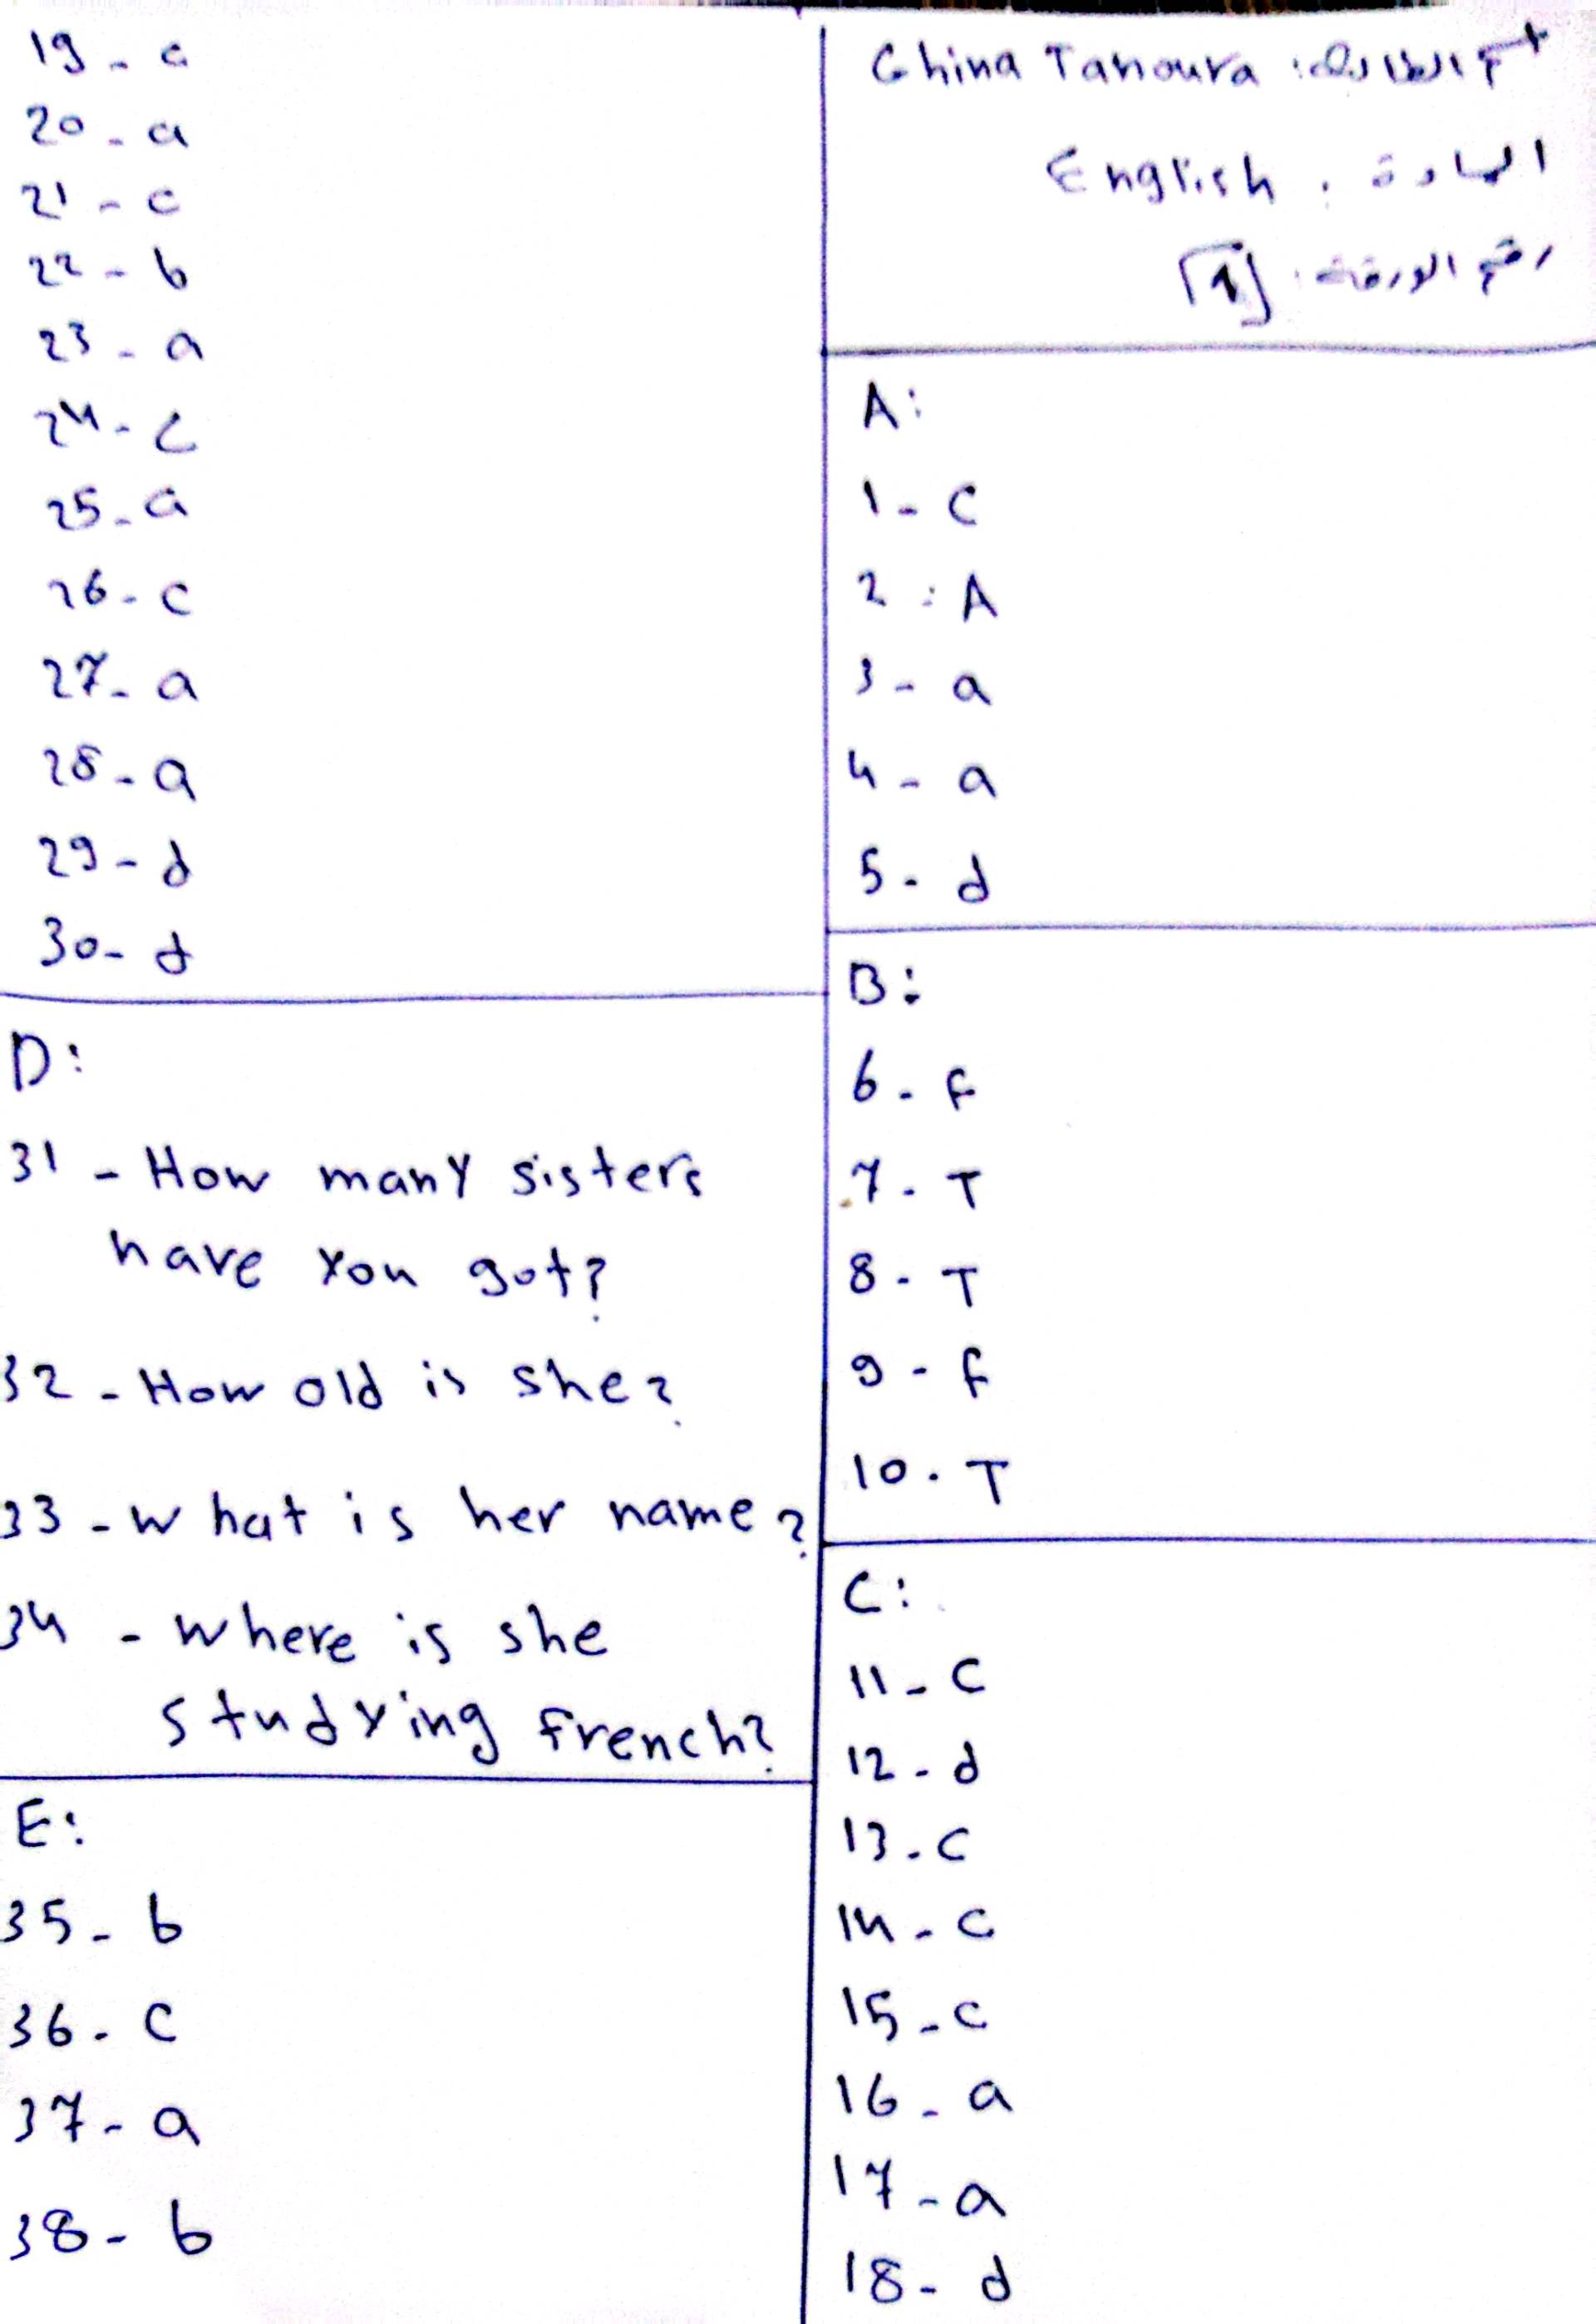 Ghina Tanoura : اسم الطالبة
English . المادة
[1] . رقم الورقة
A:
1 - C
2 : A
3 - a
4 - a
5 - d
B:
6 - F
7 - T
8 - T
9 - f
10 - T
C:
11 - C
12 - d
13 - C
14 - C
15 - C
16 - a
17 - a
18 - d
19 - c
20 - a
21 - c
22 - b
23 - a
24 - c
25 - a
26 - c
27 - a
28 - a
29 - d
30 - d
D:
31 - How many sisters
have you got?
32 - How old is she?
33 - What is her name?
34 - Where is she
studying french?
E:
35 - b
36 - C
37 - a
38 - b